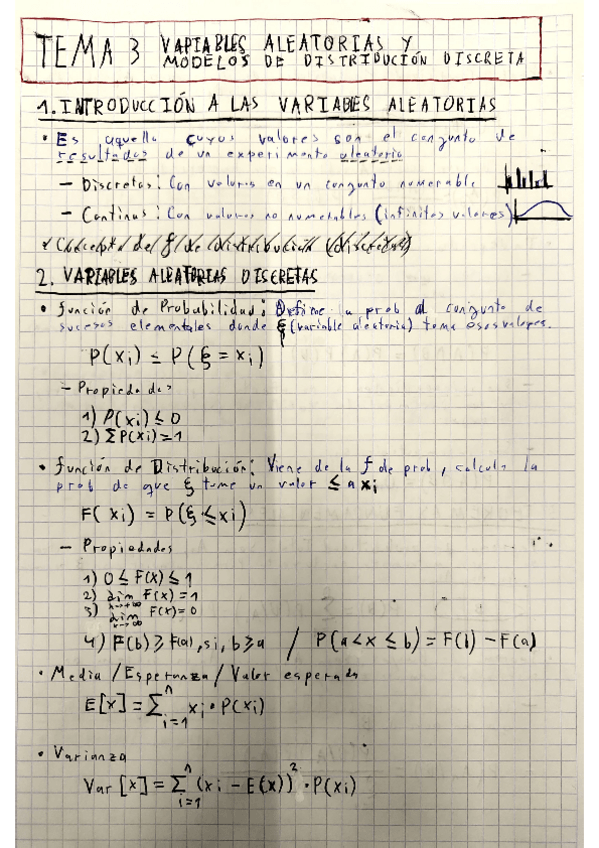 TEMA 3 VARIABLES ALEATORIAS Y
MODELOS DE DISTRIBUCIÓN DISCRETA
1. INTRODUCCIÓN A LAS VARIABLES ALEATORIAS
• Es aquella cuyos valores son el conjunto de
resultados de un experimento aleatorio
- Discretas: Con valores en un conjunto numerable
- Continuas: Con valores no numerables (infinitos valores)
2. VARIABLES ALEATORIAS DISCRETAS
• función de Probabilidad: Define la prob al conjunto de
sucesos elementales donde ξ (variable aleatoria) toma esos valores.
P(xi) ≤ P(ξ = xi)
- Propiedades
1) P(xi) ≤ 0
2) ΣP(xi) = 1
• función de Distribución: Viene de la f de prob, calcula la
prob de que ξ tome un valor ≤ a xi
F(xi) = P(ξ ≤ xi)
- Propiedades
1) 0 ≤ F(x) ≤ 1
2) lim x→+∞ F(x) = 1
3) lim x→-∞ F(x) = 0
4) F(b) ≥ F(a), si, b ≥ a / P(a < x ≤ b) = F(b) - F(a)
• Media / Esperanza / Valor esperado
E[x] = Σ n i=1 xi • P(xi)
• Varianza
Var[x] = Σ n i=1 (xi - E(x))² • P(xi)